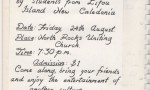 by Students from Lifou
Island New Caledonia
Date: Friday 24th August
Place: North Rocks Uniting
Church.
Time: 7.30 p.m.
Admission: $1
Come along, bring your friends
and enjoy the entertainment of
another culture